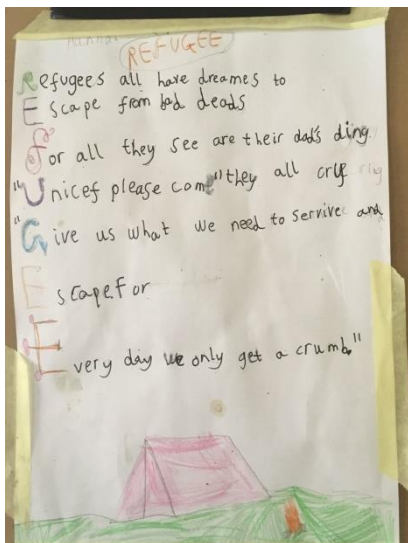 REFUGEE
Refugees all have dreames to
Escape from bad deads
For all they see are their dad's ding.
"Unicef please come" they all cry
"Give us what we need to servive and
Escape for
Every day we only get a crumb."